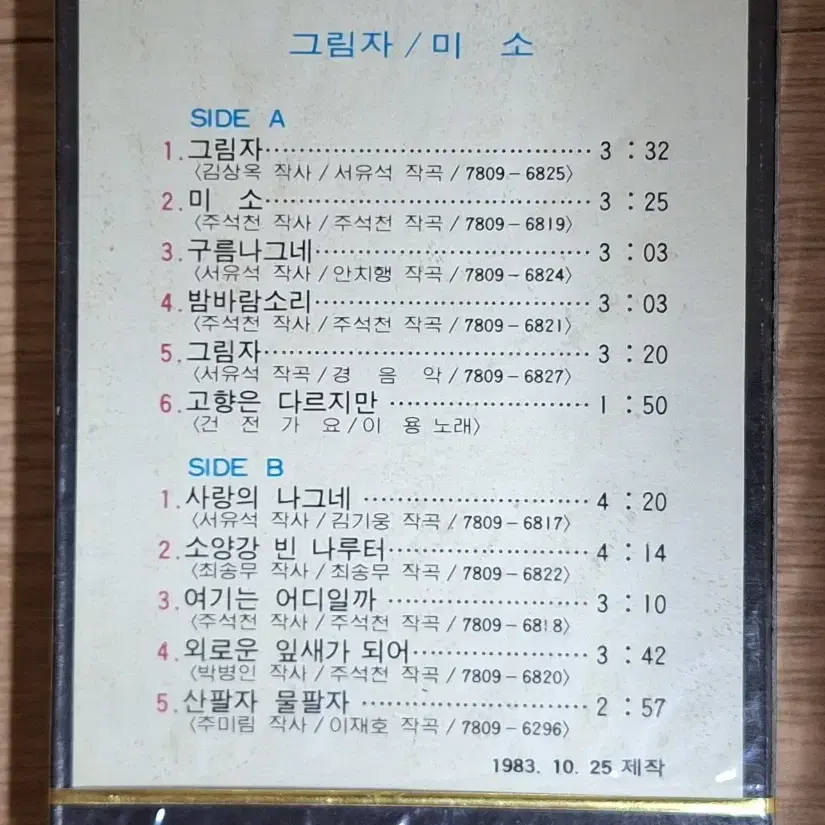 그림자 / 미 소
SIDE A
1. 그림자 3 : 32
〈김상옥 작사 / 서유석 작곡 / 7809-6825〉
2. 미 소 3 : 25
〈주석천 작사 / 주석천 작곡 / 7809-6819〉
3. 구름나그네 3 : 03
〈서유석 작사 / 안치행 작곡 / 7809-6824〉
4. 밤바람소리 3 : 03
〈주석천 작사 / 주석천 작곡 / 7809-6821〉
5. 그림자 3 : 20
〈서유석 작곡 / 경 음 악 / 7809-6827〉
6. 고향은 다르지만 1 : 50
〈건 전 가 요 / 이 용 노래〉
SIDE B
1. 사랑의 나그네 4 : 20
〈서유석 작사 / 김기웅 작곡 / 7809-6817〉
2. 소양강 빈 나루터 4 : 14
〈최송무 작사 / 최송무 작곡 / 7809-6822〉
3. 여기는 어디일까 3 : 10
〈주석천 작사 / 주석천 작곡 / 7809-6818〉
4. 외로운 잎새가 되어 3 : 42
〈박병인 작사 / 주석천 작곡 / 7809-6820〉
5. 산팔자 물팔자 2 : 57
〈추미림 작사 / 이재호 작곡 / 7809-6296〉
1983. 10. 25 제작